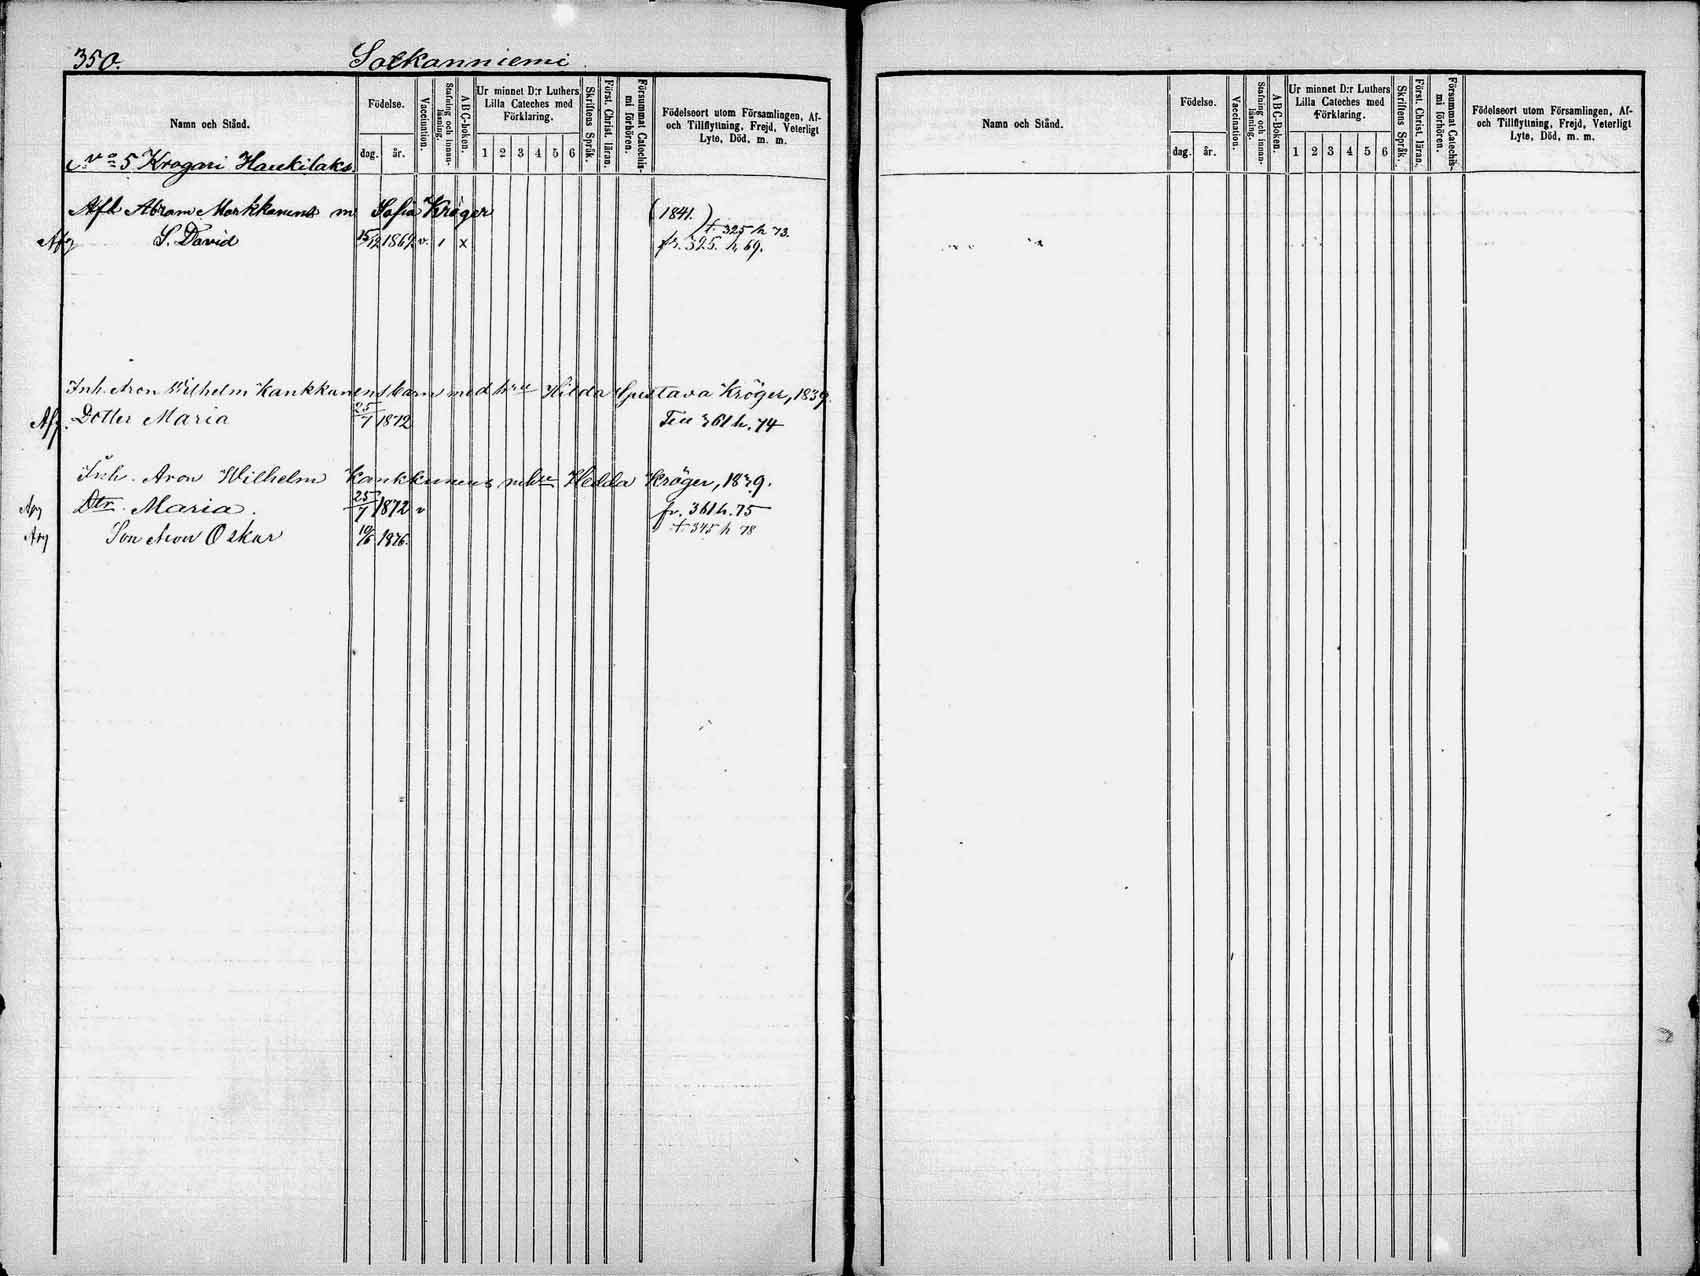 350. Solkanniemi
Namn och Stånd. Födelse. dag. år. Vaccination. Stafning och innanläsning. ABC-boken. Ur minnet D:r Luthers Lilla Cateches med Förklaring. 1 2 3 4 5 6 Skriftens Språk. Först. Christ. läran. Försummat Catechismi förhören. Födelseort utom Församlingen, Af- och Tillflyttning, Frejd, Veterligt Lyte, Död, m. m.
N:o 5 Krogari Haukilaks.
Afl Abram Markkanens m Sofia Kröger (1841.)
t 325 h 73.
Afg S. David 15/12 1869 v. 1 x fr. 325. h. 69.
Inh. Aron Wilhelm Kankkunens barn med hu Hilda Gustava Kröger, 1839.
Afg. Dotter Maria 25/7 1872 Till 361 h. 74
Inh. Aron Wilhelm Kankkunens m hu Hedda Kröger, 1839.
Afg Dtr. Maria. 25/7 1872 v fr. 361 h. 75
t 345 h 78
Afg Son Aron Oskar 10/6 1876.
Namn och Stånd. Födelse. dag. år. Vaccination. Stafning och innanläsning. ABC-boken. Ur minnet D:r Luthers Lilla Cateches med Förklaring. 1 2 3 4 5 6 Skriftens Språk. Först. Christ. läran. Försummat Catechismi förhören. Födelseort utom Församlingen, Af- och Tillflyttning, Frejd, Veterligt Lyte, Död, m. m.